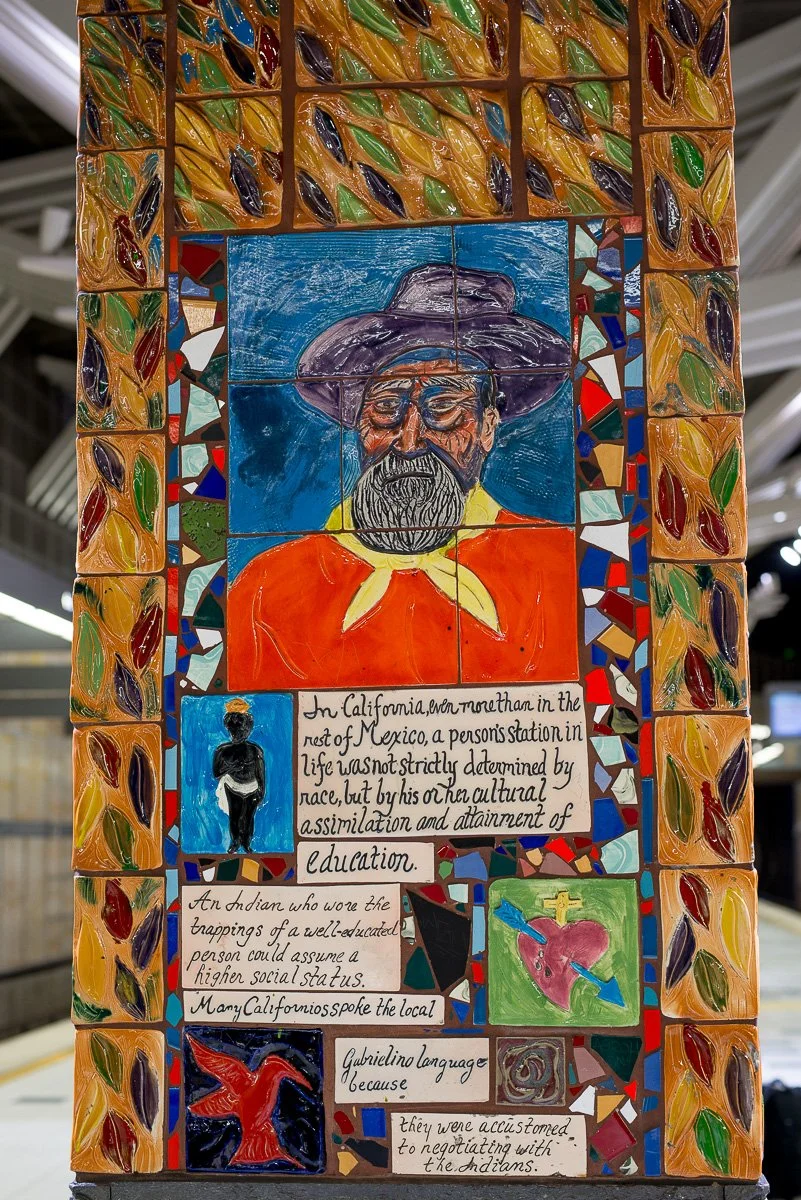 In California, even more than in the
rest of Mexico, a person's station in
life was not strictly determined by
race, but by his or her cultural
assimilation and attainment of
education.
An Indian who wore the
trappings of a well-educated
person could assume a
higher social status.
Many Californios spoke the local
Gabrielino language
because
they were accustomed
to negotiating with
the Indians.